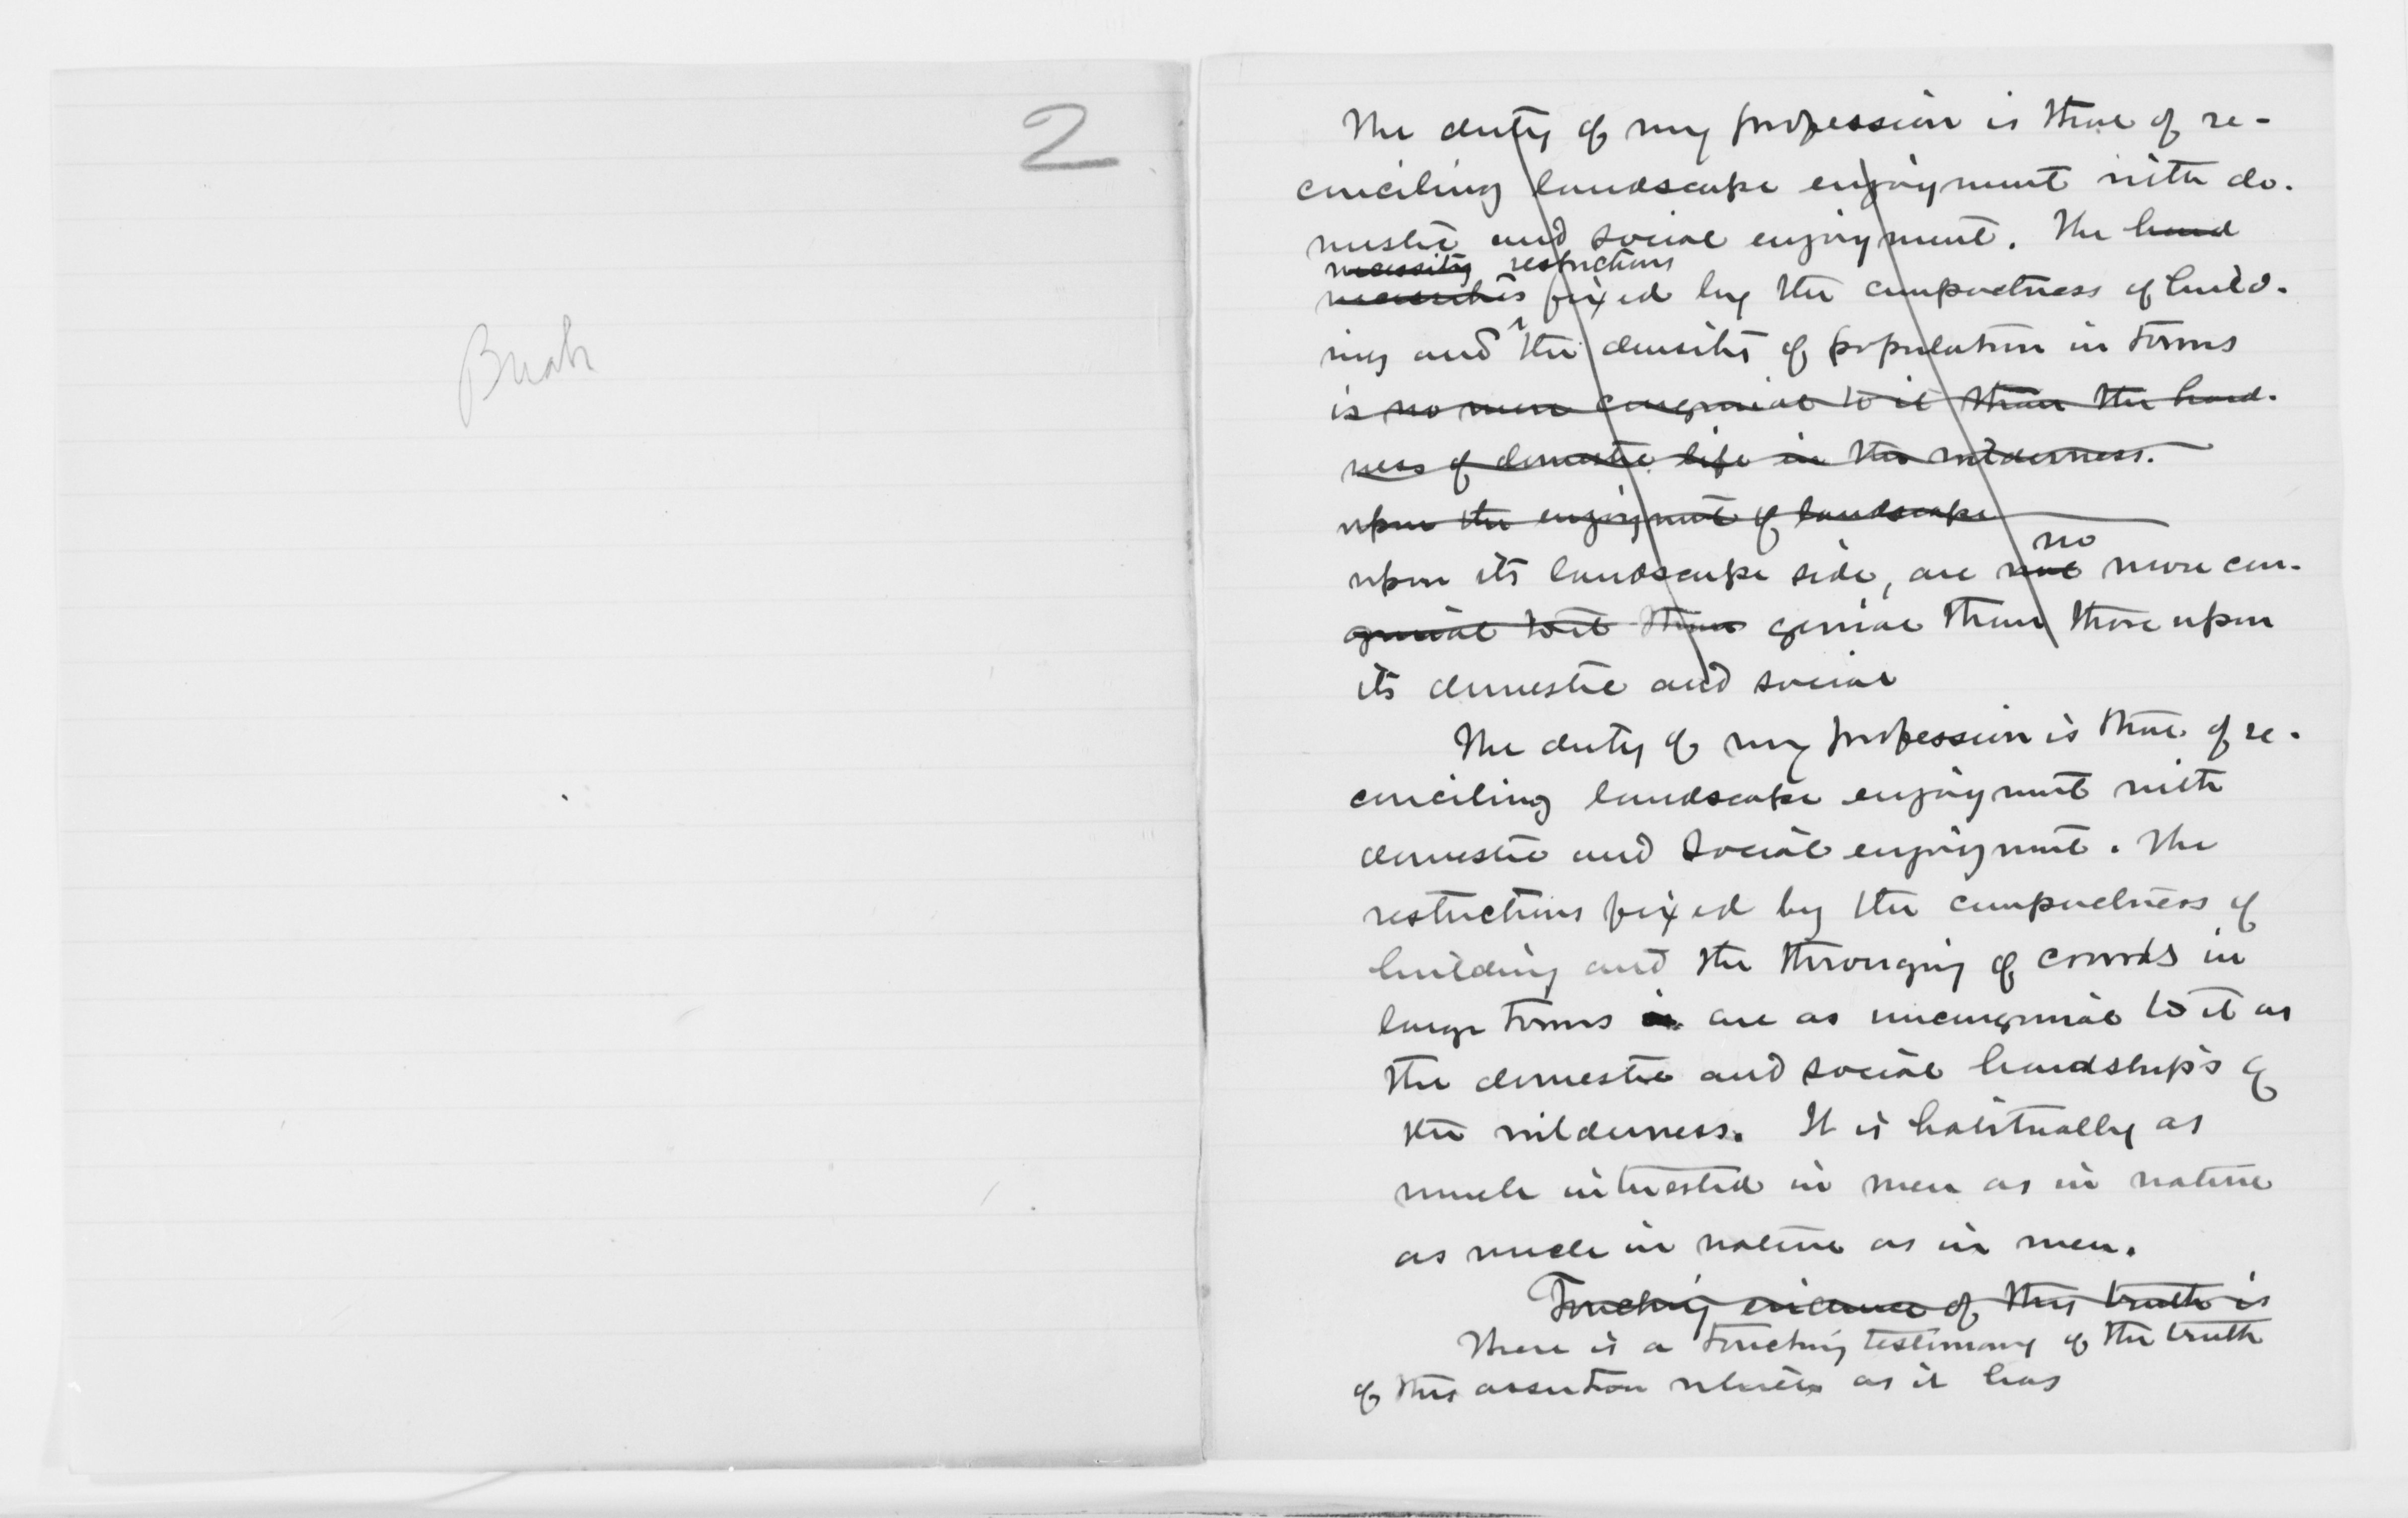 2
The duty of my profession is that of re-
conciling landscape enjoyment with do-
mestic and social enjoyment. The hard
necessity restrictions
necessities fixed by the compactness of build-
ing and the density of population in towns
is no more congenial to it than the hard-
ness of domestic life in the wilderness.
upon the enjoyment of landscape
no
upon its landscape side, are not more con-
genial to it than genial than those upon
its domestic and social
The duty of my profession is that of re-
conciling landscape enjoyment with
domestic and social enjoyment. The
restrictions fixed by the compactness of
building and the thronging of crowds in
large towns are as uncongenial to it as
the domestic and social hardships of
the wilderness. It is habitually as
much interested in men as in nature
as much in nature as in men.
Touching evidence of this truth is
There is a touching testimony of the truth
of this assertion as it has